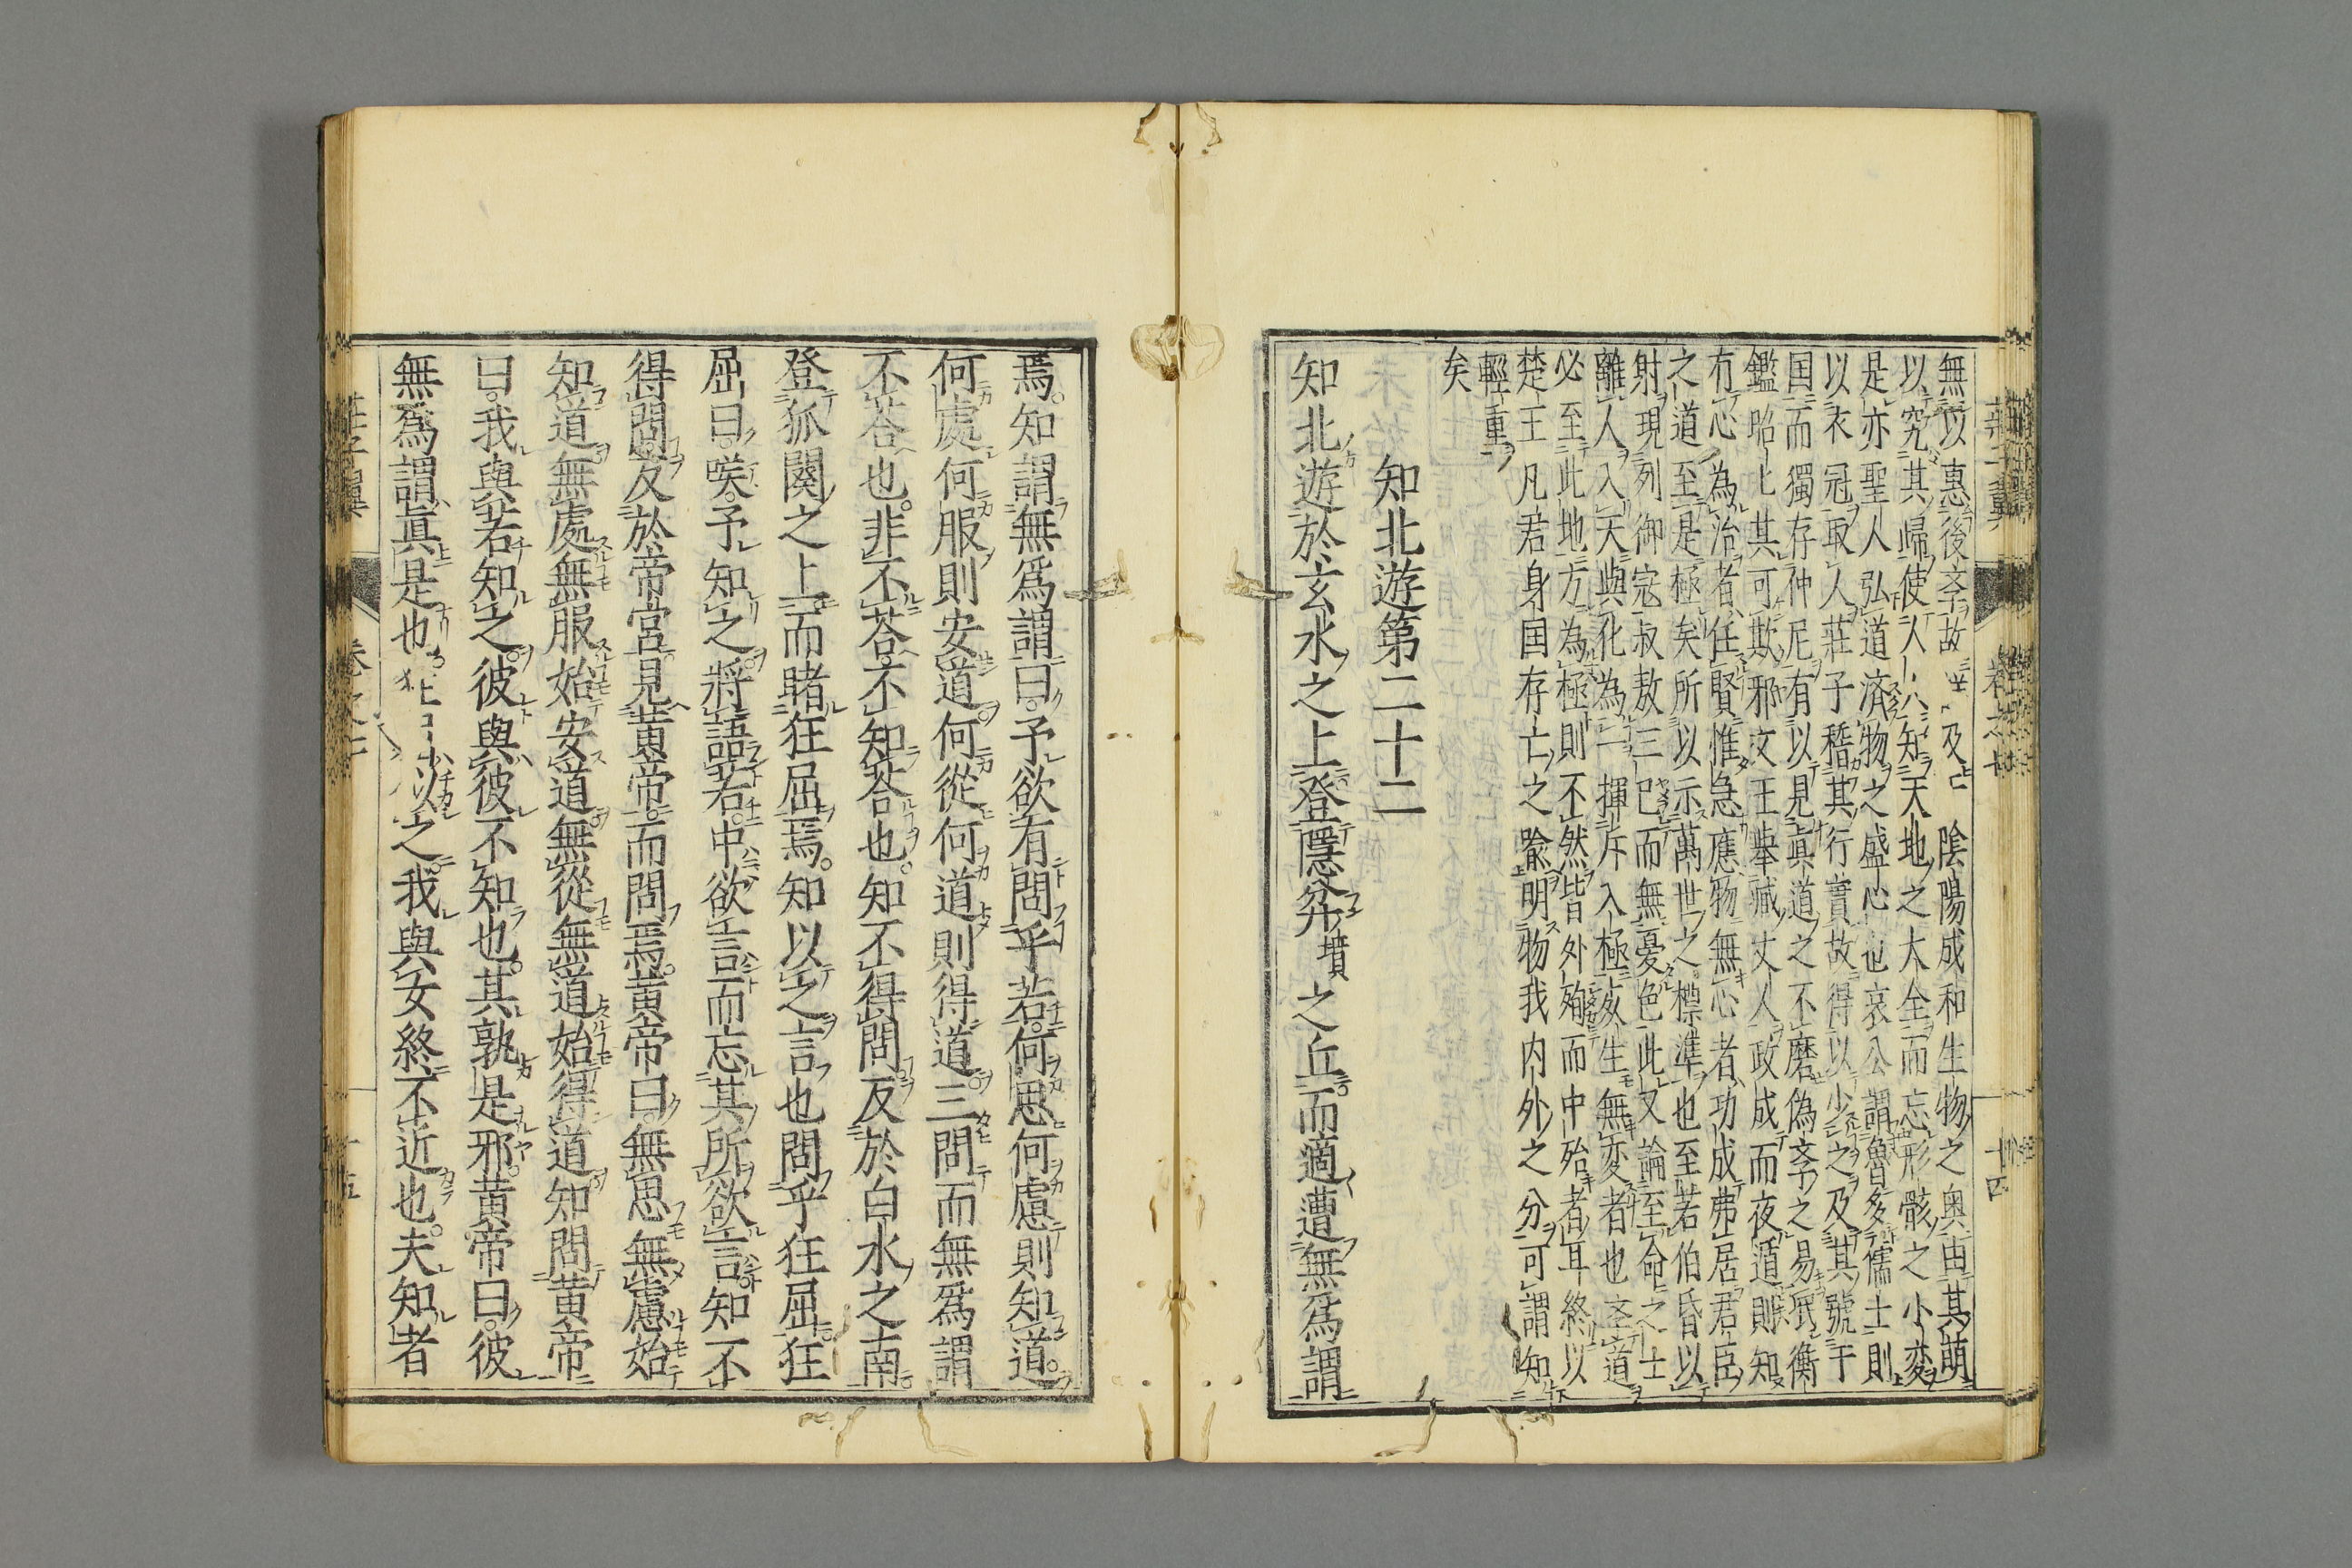 無以惠後孛故 及亡 陰陽成和生物之奥由其萌
以究其歸使人 知天地之大全而忘形骸之小変
是亦聖人弘道済物之盛心也哀公謂魯多儒士則
以衣冠取人莊子稽其行實故得以少之及其號于
国而獨存仲尼有以見眞道之不磨偽孛之易衹衡
鑑昭 其可欺邪文王舉臧丈人政成而夜遁則知
有心為治者任賢惟急應物無心者功成弗居君臣
之道至是極矣所以示萬世之標準也至若伯昏以
射現列御寇叔敖三已而無憂色此又論至命之士
離人入天與化為一揮斥入極灰生無変者也 道
必至此地方為極則不然皆外殉而中殆者耳終以
楚王凡君身国存亡之喩明物我内外之分可謂知
輕重
矣
知北遊第二十二
知北遊於玄水之上登隱弅墳之丘而適遭無為謂
焉知謂無爲謂曰予欲有問乎若何思何慮則知道
何處何服則安道何從何道則得道三問而無爲謂
不荅也非不荅不知荅也知不得問反於白水之南
登狐闋之上而睹狂屈焉知以之言也問乎狂屈狂
屈曰唉予知之將語若中欲言而忘其所欲言知不
得問反於帝宮見黄帝而問焉黄帝曰無思無慮始
知道無處無服始安道無從無道始得道知問黄帝
曰我與若知之彼與彼不知也其孰是邪黄帝曰彼
無爲謂眞是也 以之我與女終不近也夫知者